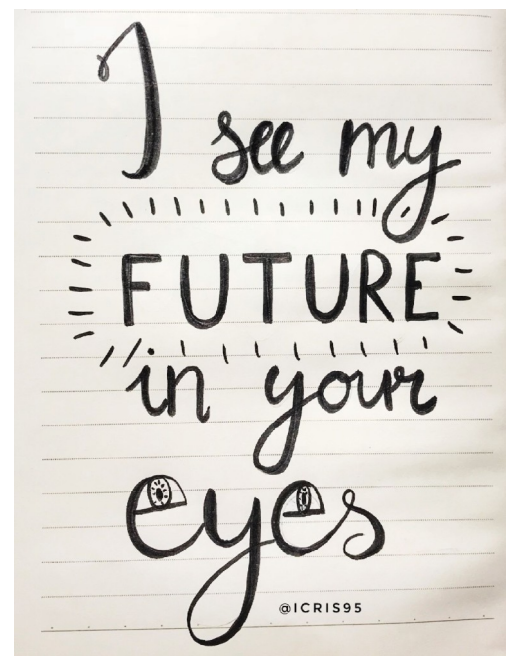 I see my
FUTURE
in your
eyes
@ICRIS95